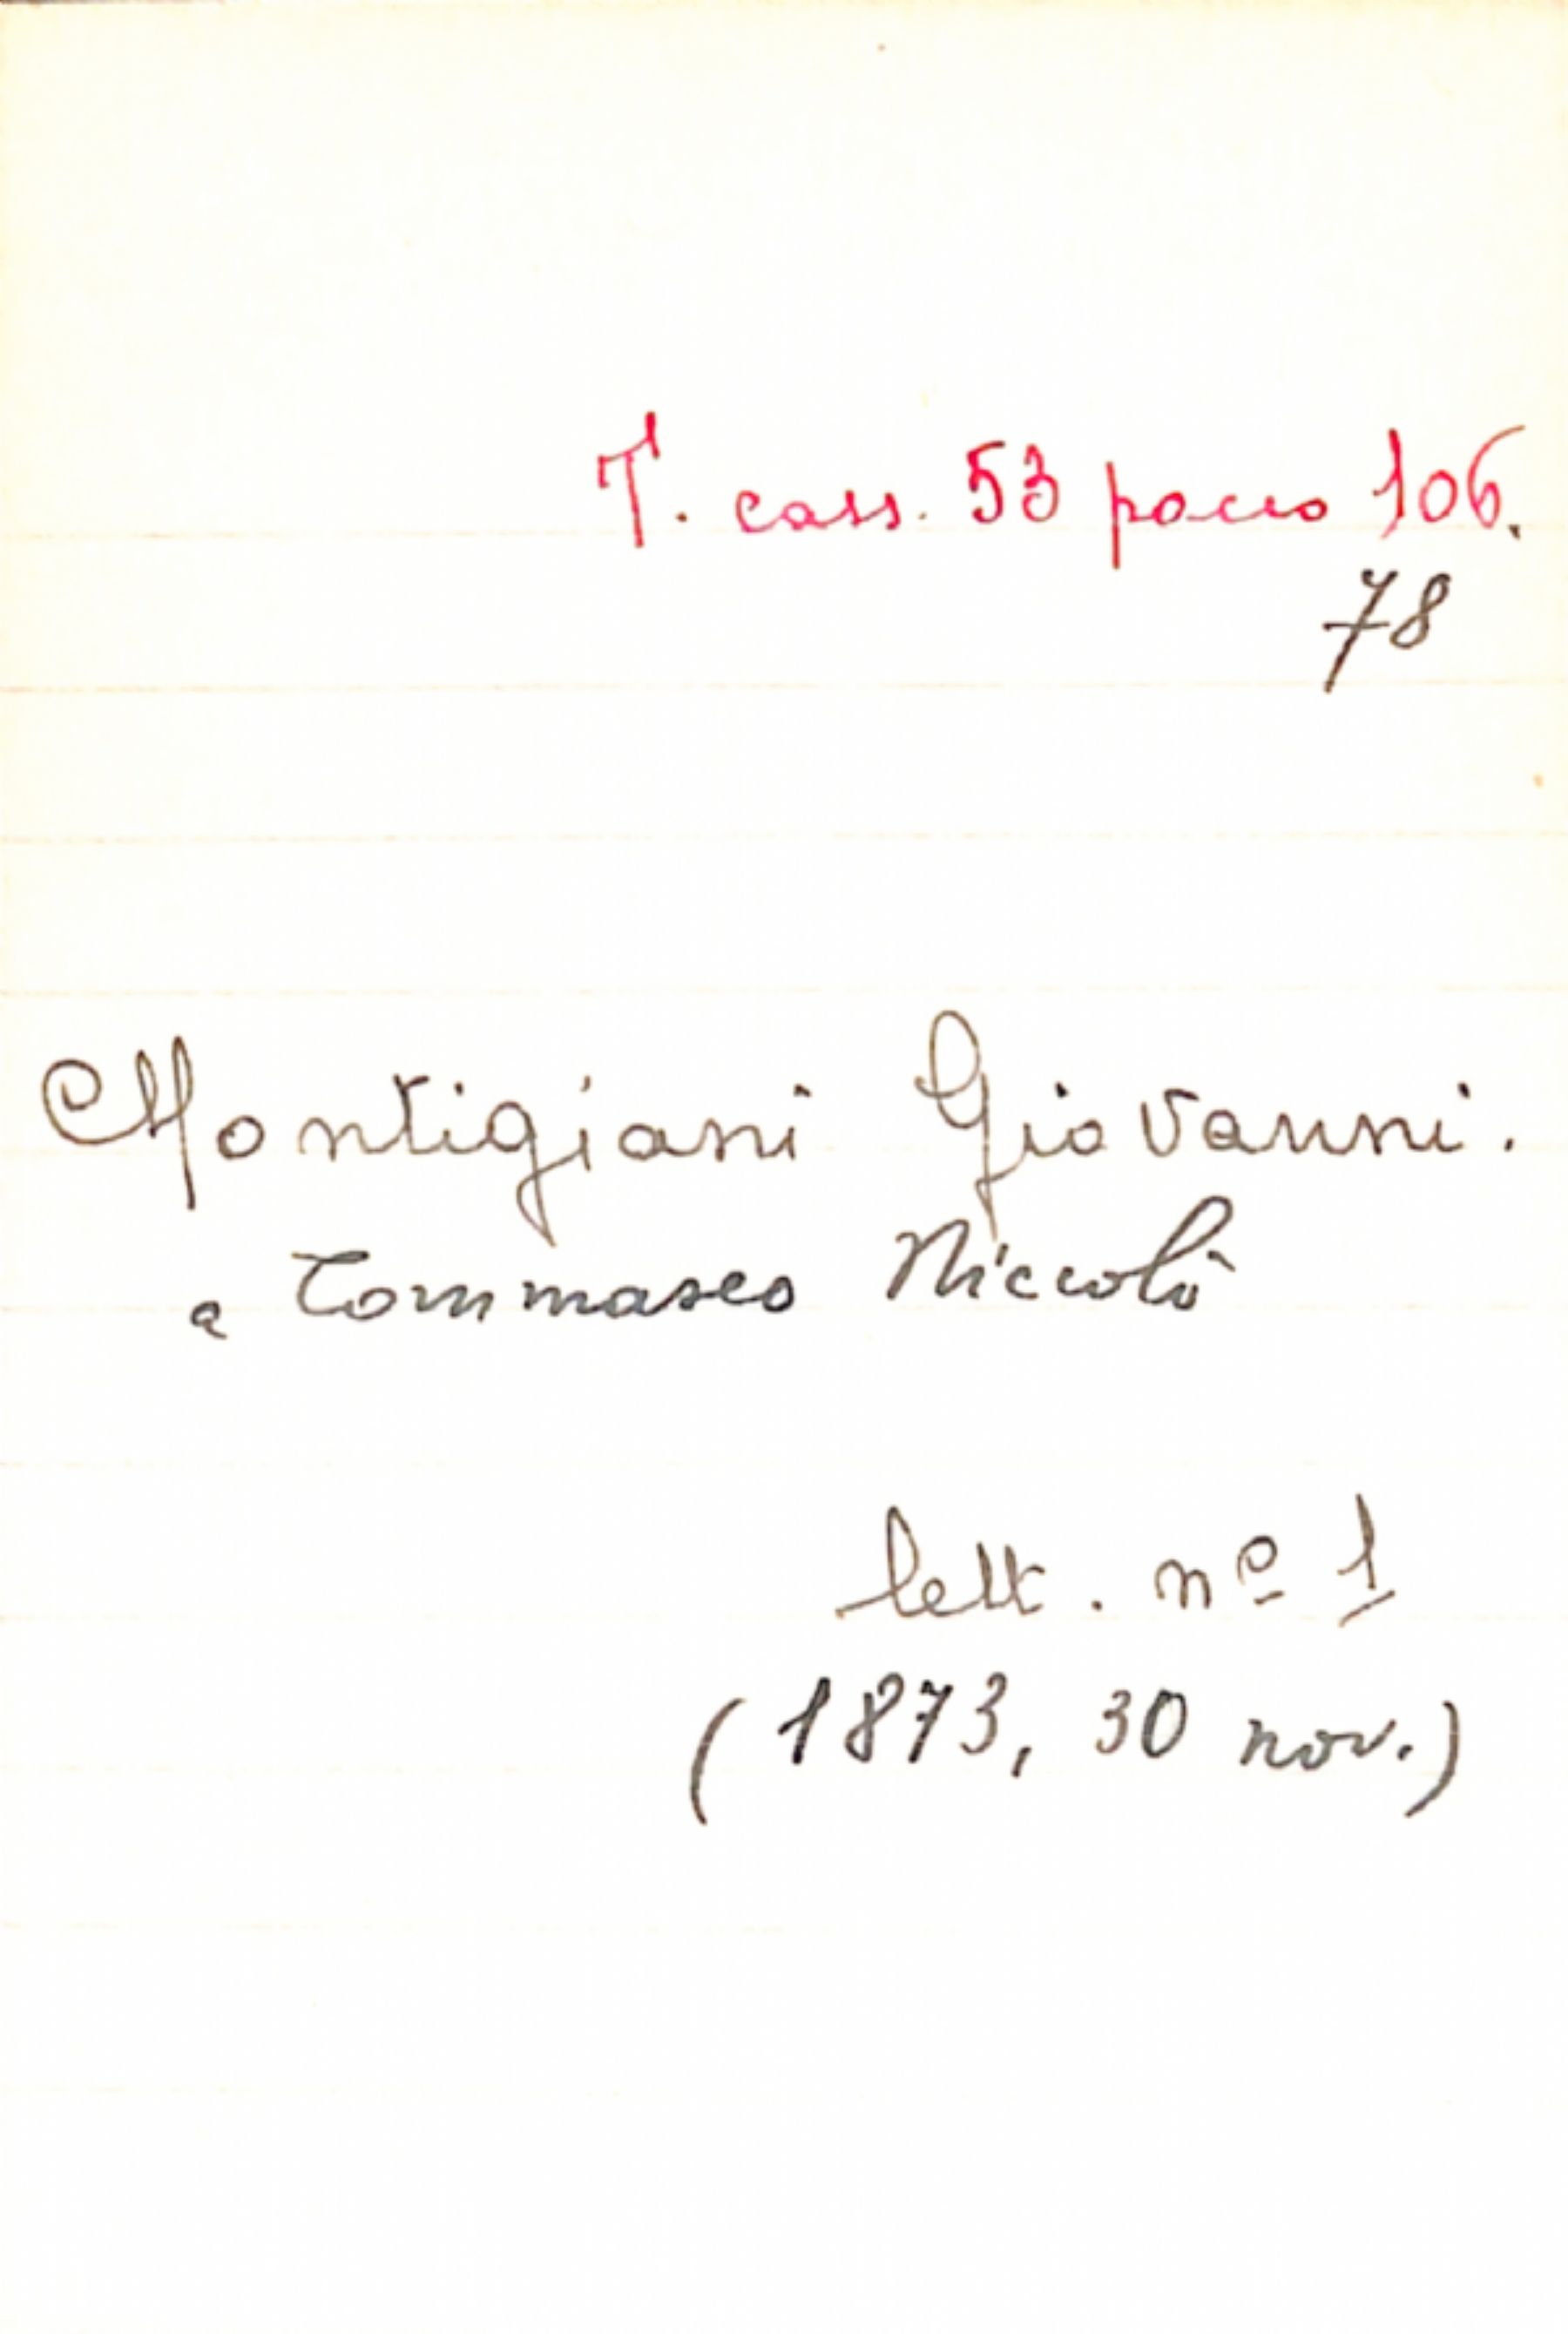 T. cass. 53 pacco 106.
78
Montigiani Giovanni.
a Tommaseo Niccolò
lett. nº 1
(1873, 30 nov.)